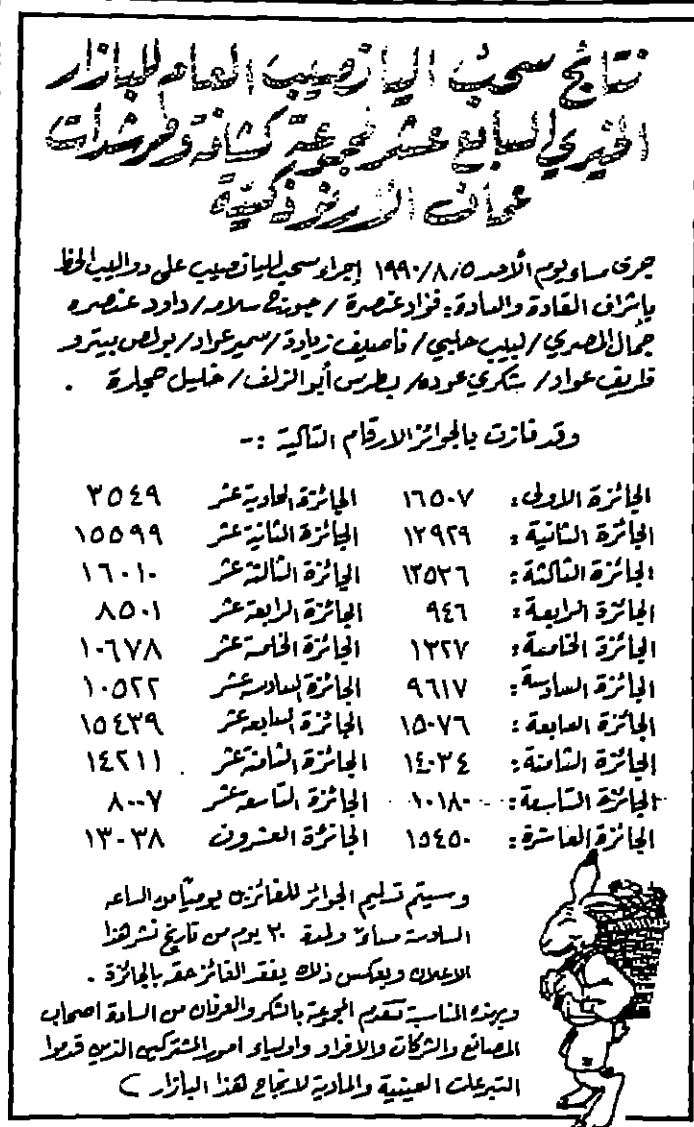 نتائج سحب اليانصيب العام للبازار
الخيري السابع عشر لمجموعة كشافة ومرشدات
عمان الارثوذكسية
جرى مساء يوم الأحد ١٩٩٠/٨/٥ إجراء سحب لليانصيب على دواليب الحظ
بإشراف القادة والسادة: فؤاد عنصرة / جورج سلامه / داود عنصره
جمال المصري / لبيب حلبي / ناصيف زيادة / سمير عواد / بولص بيترو
ظريف عواد / شكري عوده / بطرس أبو الزلف / خليل حجارة .
وقد فازت بالجوائز الارقام التالية :-
الجائزة الاولى: ١٦٥٠٧ الجائزة الحادية عشر ٣٥٤٩
الجائزة الثانية : ١٢٩٢٩ الجائزة الثانية عشر ١٥٥٩٩
الجائزة الثالثة : ١٣٥٢٦ الجائزة الثالثة عشر ١٦٠١٠
الجائزة الرابعة : ٩٤٦ الجائزة الرابعة عشر ٨٥٠١
الجائزة الخامسة : ١٣٢٧ الجائزة الخامسة عشر ١٠٦٧٨
الجائزة السادسة : ٩٦١٧ الجائزة السادسة عشر ١٠٥٢٢
الجائزة السابعة : ١٥٠٧٦ الجائزة السابعة عشر ١٥٤٣٩
الجائزة الثامنة : ١٤٠٣٤ الجائزة الثامنة عشر ١٤٢١١
الجائزة التاسعة : ١٠١٨٠ الجائزة التاسعة عشر ٨٠٠٧
الجائزة العاشرة : ١٥٤٥٠ الجائزة العشرون ١٣٠٣٨
وسيتم تسليم الجوائز للفائزين يومياً من الساعه
السادسة مساءً ولمدة ٣٠ يوم من تاريخ نشر هذا
الاعلان وبعكس ذلك يفقد الفائز حقه بالجائزة .
وبهذه المناسبة تتقدم المجموعة بالشكر والعرفان من السادة اصحاب
المصانع والشركات والافراد واولياء امور المشتركين الذين قدموا
التبرعات العينية والمادية لانجاح هذا البازار